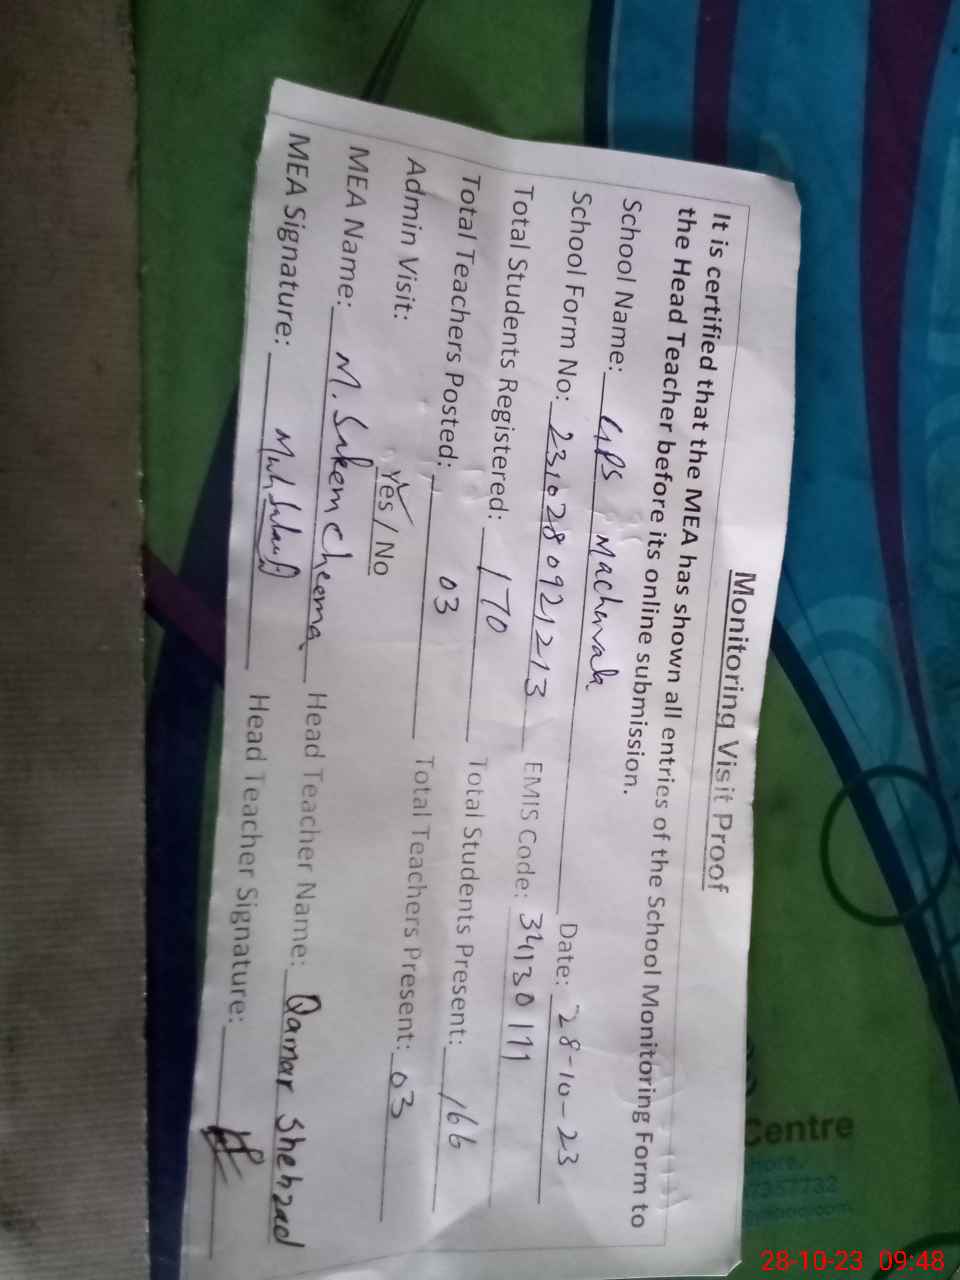 Monitoring Visit Proof
It is certified that the MEA has shown all entries of the School Monitoring Form to
the Head Teacher before its online submission.
School Name: GPS Machewala Date: 28-10-23
School Form No: 2310280921213 EMIS Code: 34130111
Total Students Registered: 170 Total Students Present: 166
Total Teachers Posted: 03 Total Teachers Present: 03
Admin Visit: Yes / No
MEA Name: M. Cheema Head Teacher Name: Qamar Shehzad
MEA Signature: Head Teacher Signature:
Centre
28-10-23 09:48